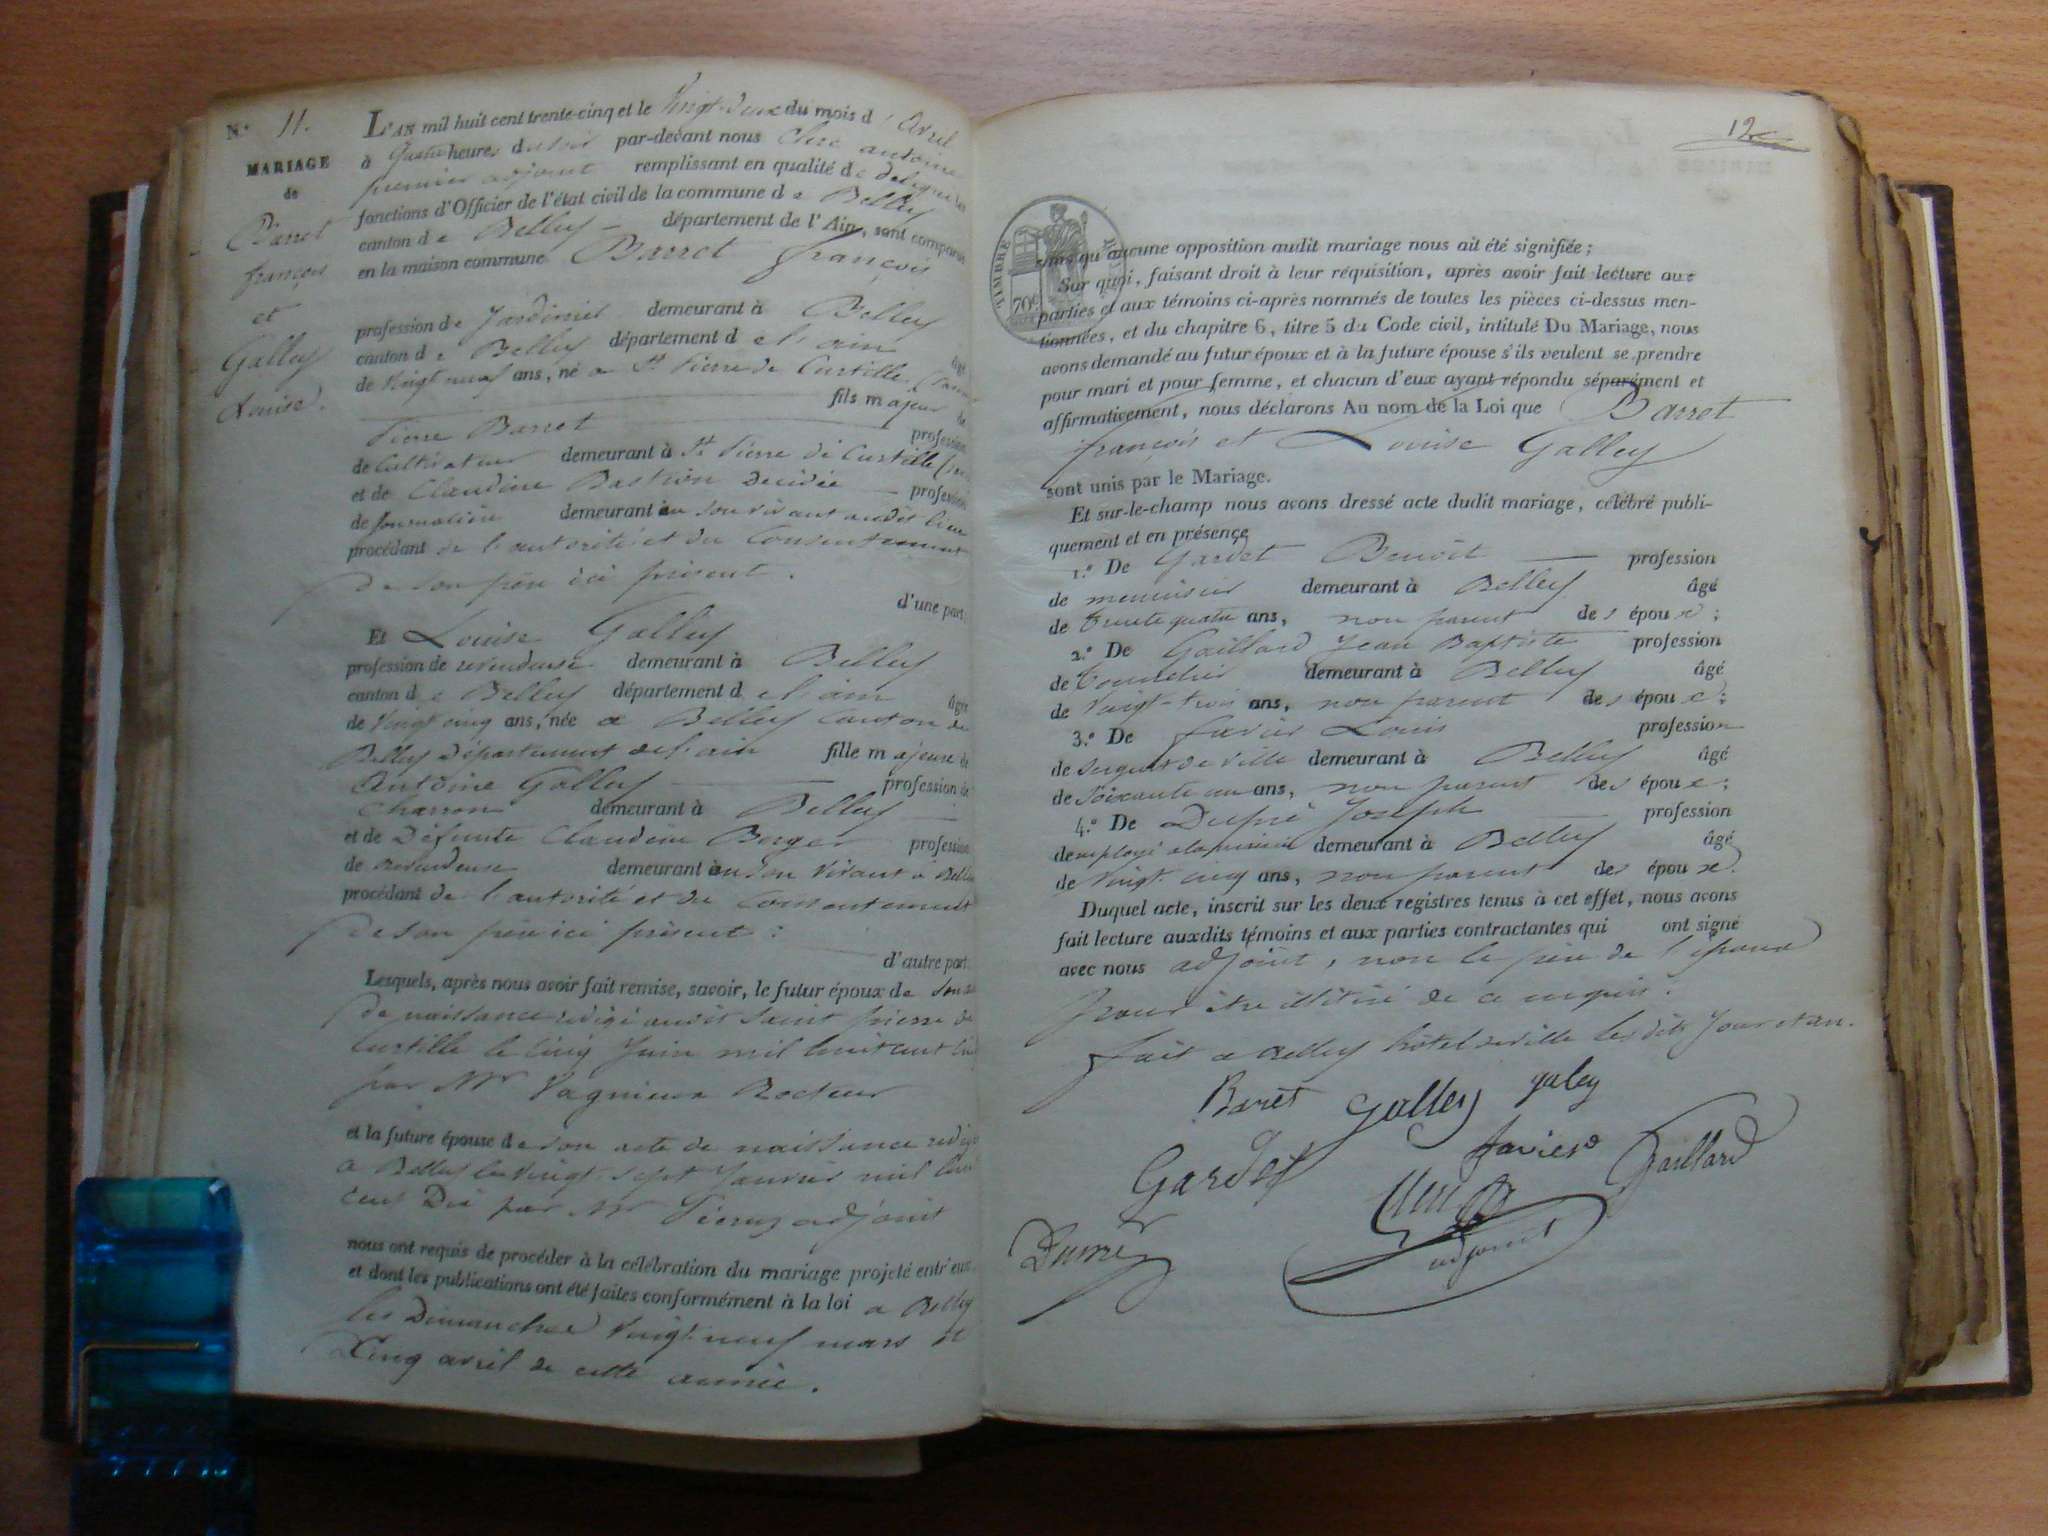 N.º 11.
MARIAGE
de
Barret
françois
et
Galley
Louise.
L'AN mil huit cent trente-cinq et le Vingt-deux du mois d'Avril
à quatre heures du soir par-devant nous Clerc antoine
premier adjoint remplissant en qualité de délégué les
fonctions d'Officier de l'état civil de la commune de Belley
canton de Belley département de l'Ain, sont comparus
en la maison commune Barret françois
profession de Jardinier demeurant à Belley
canton de Belley département de l'ain âgé
de Vingt neuf ans, né a St Pierre de Curtille
fils majeur de
Pierre Barret profession
de Cultivateur demeurant à St Pierre de Curtille
et de Claudine Bastion décédée profession
de journalière demeurant en son vivant audit lieu
procédant de l'autorité et du Consentement
de son père ici présent.
d'une part
Et Louise Galley
profession de revendeuse demeurant à Belley
canton de Belley département de l'ain âgée
de Vingt cinq ans, née a Belley Canton de
Belley Département de l'ain fille majeure de
Antoine Galley profession de
Charron demeurant à Belley
et de Défunte Claudine Berger profession
de revendeuse demeurant en son vivant a Belley
procédant de l'autorité et du Consentement
de son père ici présent :
d'autre part.
Lesquels, après nous avoir fait remise, savoir, le futur époux de son
de naissance rédigé audit Saint pierre de
Curtille le cinq Juin mil huit cent
par Mr Vagnieux Recteur
et la future épouse de son acte de naissance rédigé
a Belley le vingt sept Janvier mil huit
cent Dix par Mr adjoint
nous ont requis de procéder à la célébration du mariage projeté entr'eux
et dont les publications ont été faites conformément à la loi a Belley
les Dimanches Vingt neuf mars et
Cinq avril de cette année.
12
TIMBRE
70c
sans qu'aucune opposition audit mariage nous ait été signifiée ;
Sur quoi, faisant droit à leur réquisition, après avoir fait lecture aux
parties et aux témoins ci-après nommés de toutes les pièces ci-dessus men-
tionnées, et du chapitre 6, titre 5 du Code civil, intitulé Du Mariage, nous
avons demandé au futur époux et à la future épouse s'ils veulent se prendre
pour mari et pour femme, et chacun d'eux ayant répondu séparément et
affirmativement, nous déclarons Au nom de la Loi que Barret
françois et Louise Galley
sont unis par le Mariage.
Et sur-le-champ nous avons dressé acte dudit mariage, célébré publi-
quement et en présence
1.º De Gardet Benoît profession
de menuisier demeurant à Belley âgé
de trente quatre ans, non parent des époux ;
2.º De Gaillard Jean Baptiste profession
de demeurant à Belley âgé
de Vingt-trois ans, non parent des époux ;
3.º De favier Louis profession
de Sergent de Ville demeurant à Belley âgé
de Soixante un ans, non parent des époux ;
4.º De Dupré Joseph profession
de employé a la mairie demeurant à Belley âgé
de Vingt cinq ans, non parent des époux.
Duquel acte, inscrit sur les deux registres tenus à cet effet, nous avons
fait lecture auxdits témoins et aux parties contractantes qui ont signé
avec nous adjoint, non le père de l'époux
pour être illitéré de ce requis.
fait a Belley hôtel de ville les dits Jour et an.
Baret Galley galey
Gardet favier Gaillard
Dupré Clerc
adjoint